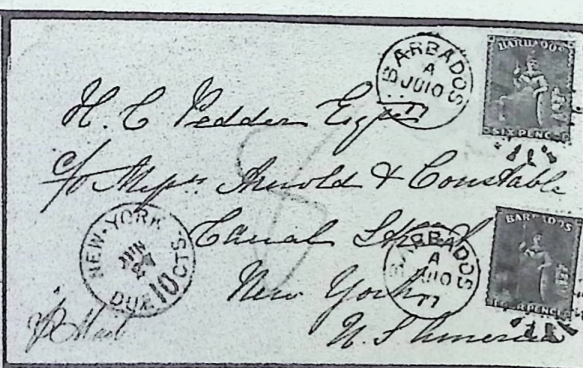 BARBADOS
A
JU 10
77
BARBADOS
SIX PENCE
H. C Pedder Esqre
c/o Messrs Arnold & Constable
Canal Street
New York
U. S America
NEW-YORK
JUN
27
DUE 10 CTS.
BARBADOS
A
JU 10
77
BARBADOS
FOUR PENCE